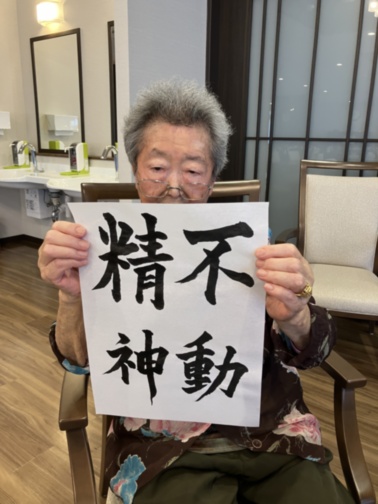 不動
精神